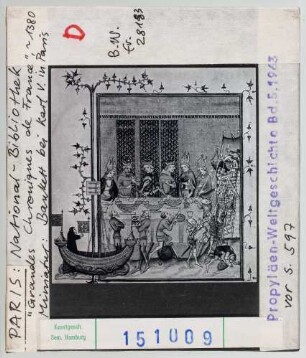 PARIS: National-Bibliothek
"Grandes Chroniques de France", ~1380
Miniatur: Bankett bei Karl V. in Paris
D
B.W.
fr.
Propyläen-Weltgeschichte Bd. 5, 1963
vor S. 597
Kunstgesch.
Sem. Hamburg
151009